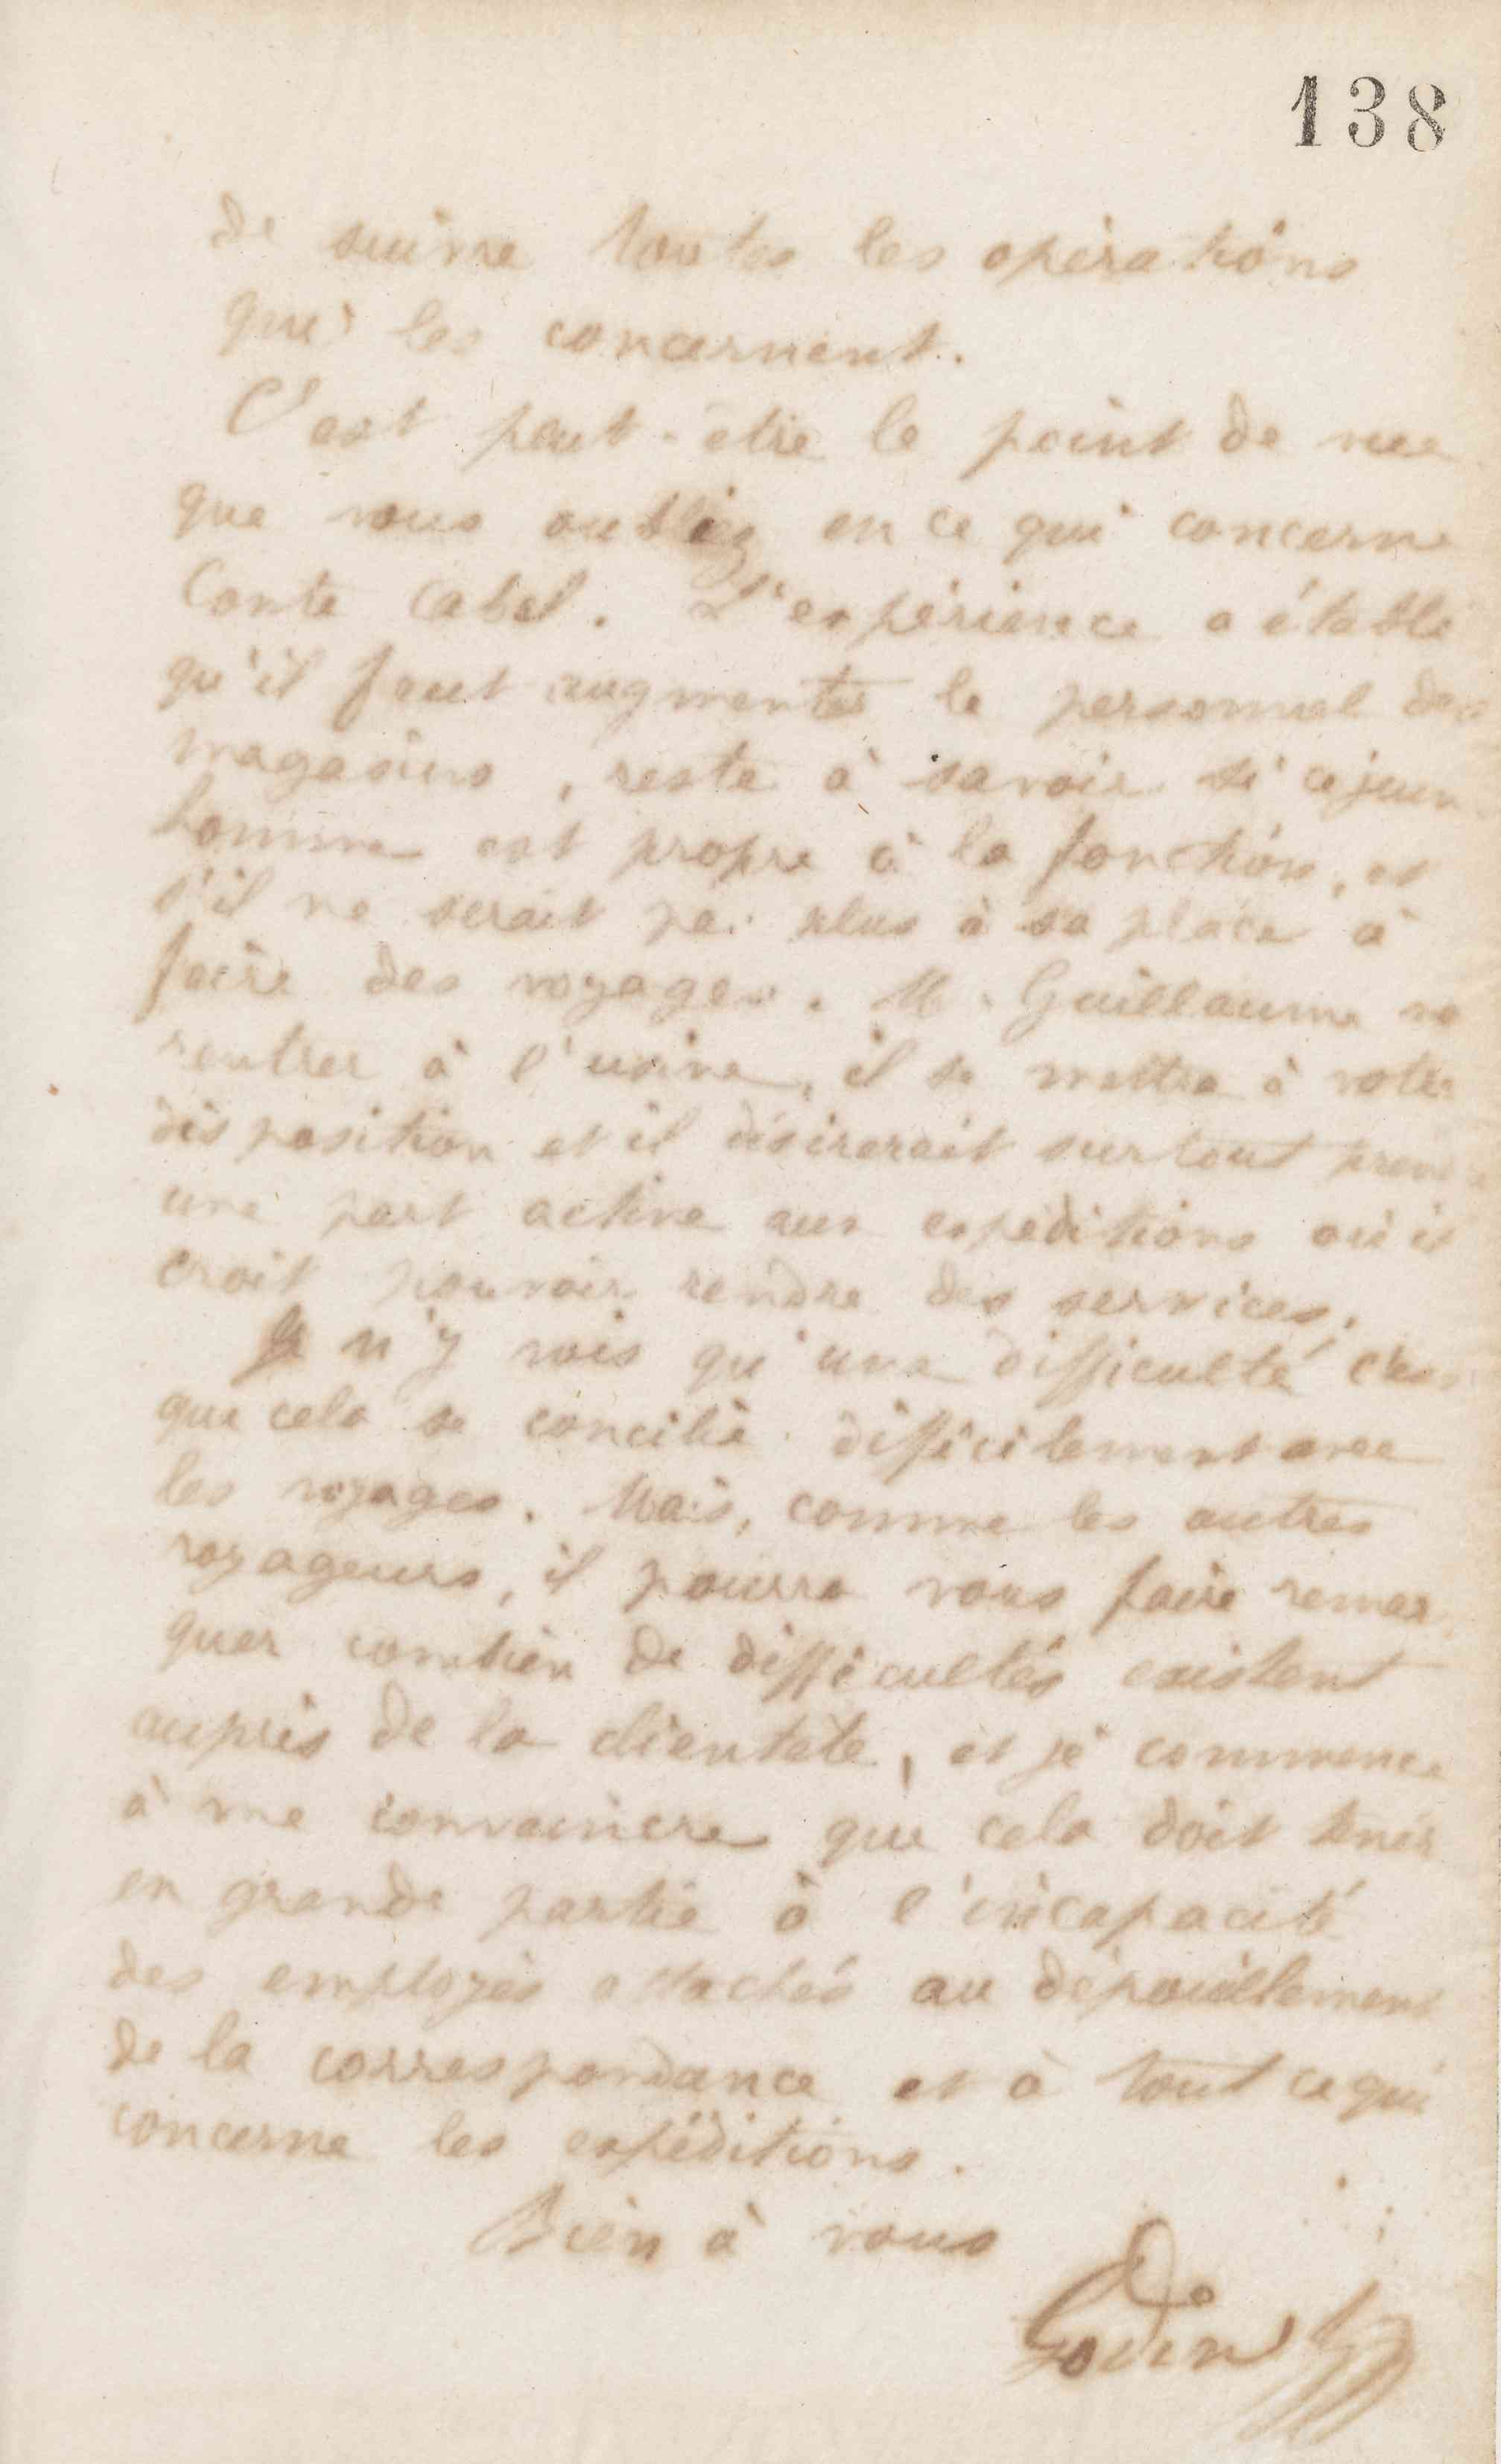 138
de suivre toutes les opérations
qui les concernent.
C'est peut-être le point de vue
que vous oubliez en ce qui concerne
Conte Cabel. L'expérience a établi
qu'il faut augmenter le personnel des
magasins, reste à savoir si ce jeune
homme est propre à la fonction, et
s'il ne serait pas plus à sa place à
faire des voyages. M. Guillaume va
rentrer à l'usine, il se mettra à votre
disposition et il désirerait surtout prendre
une part active aux expéditions où il
croit pouvoir rendre des services.
Je n'y vois qu'une difficulté c'est
que cela se concilie difficilement avec
les voyages. Mais, comme les autres
voyageurs, il pourra vous faire remar
quer combien de difficultés existent
auprès de la clientèle, et je commence
à me convaincre que cela doit tenir
en grande partie à l'incapacité
des employés attachés au dépouillement
de la correspondance et à tout ce qui
concerne les expéditions.
Bien à vous
Godin